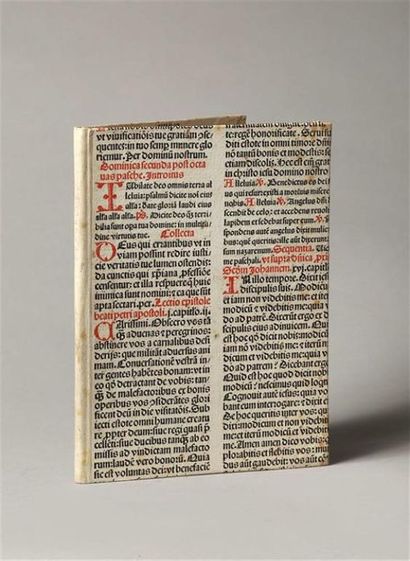 vt viuificatiõis tue gratiam ꝯse⸗
quentes: in tuo semp munere glo
riemur. Per dominũ nostrum.
Dominica secunda post octa
uas pasche. Introitus
IUbilate deo omnis terra al
leluia: psalmũ dicite noĩ eius
alfa: date gloriã laudi eius
alfa alfa alfa. ps. Dicite deo q̃ terri⸗
bilia sunt opa tua domine: in multitu⸗
dine virtutis tue. Collecta
DEus qui errantibus vt in
viam possint redire iusti⸗
cie veritatis tue lumen ostendis:
da cunctis qui xpiana ꝓfessiõe
censentur: et illa respuere q̃ huic
inimica sunt nomini: et ea que sunt
apta sectari. per. Lectio epistole
beati petri apostoli. j. capitulo. ij.
CArissimi. Obsecro vos tã
q̃ aduenas et peregrinos:
abstinere vos a carnalibus desi
derijs: que militãt aduersus ani
mam. Conuersationẽ vestrã in⸗
ter gentes habẽtes bonam: vt in
eo qd̃ detractant de vobis: tan
q̃ de malefactoribus: ex bonis
operibus vos cõsiderãtes glori
ficent deũ in die visitatiõis. Sub
iecti estote omni humane creatu
re, ppter deum: siue regi quasi p̃
cellẽti: siue ducibus tanq̃ ab eo
missis ad vindictam malefacto
rum: laudẽ vero bonoꝝ. Quia
sic est voluntas dei: vt benefaciẽ
te: regẽ honorificate. Serui sub
diti estote in omni timore dñis
nõ tantũ bonis et modestis: sed
etiam discolis. Hec est em̃ gratia
in christo iesu domino nostro
Alleluia ꝟ. Benedictus es dei fi
lius qui resurrexisti a mortuis misere
nobis. Alleluia ꝟ. Angelus dñi de
scendit de celo: et accedens reuol
lapidem et sedebat super eum. ꝟ. Re
spondens autẽ angelus dixit mulieri
bus: quẽ queritis: ille aũt dixerunt
nazarenum. Sequentia.
paschali. vt supra dñica p̃
Scd̃m Johannem. xvj. capi
IN illo tempore. Dixit iesus
discipulis suis. Modicũ et
non videbitis me: et iterũ mo
dicum et videbitis me: quia va
do ad patrẽ. Dixerũt ergo ex di
scipulis eius adinuicem. Quid
est hoc qd̃ dicit nobis: modicũ et
non videbitis me: et iterũ mo
dicum et videbitis me: quia va
do ad patrem? Dicebant ergo.
Quid est hoc quod dicit modi
cum? nescimus quid loquitur.
Cognouit autẽ iesus: quia vole
bant eum interrogare: et dixit eis
De hoc queritis inter vos: quia
dixi modicũ et nõ videbitis me:
et iterũ modicũ et videbitis me.
me. Amen amen dico vobis: quia
plorabitis et flebitis vos: mun
dus aũt gaudebit: vos aũt con